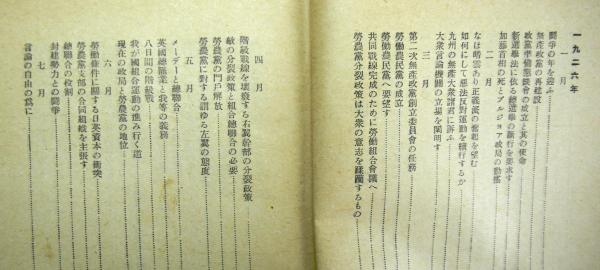 一九二六年
一月
鬪爭の年を迎ふ
無産政黨の再建設
政黨準備懇談會の成立と其の使命
新選擧法に依る總選擧の斷行を要求す
加藤首相の死とブルジョア政局の動搖
二月
なほ暗雲の中正義派の奮起を望む
如何にして惡法反對運動を續行するか
九州の無産大衆諸君に訴ふ
大衆言論機關の立場を闡明す
三月
第二次無産政黨創立委員會の任務
勞働農民黨の成立
勞働農民黨へ要望す
共同戰線完成のために勞働組合會議へ
勞農黨分裂政策は大衆の意志を蹂躪するもの
四月
階級戰線を壞亂する右翼幹部の分裂政策
敵の分裂政策と組合總聯合の必要
勞農黨の門戸解放
勞農黨に對する謂ゆる左翼の態度
五月
メーデーと總聯合
英國總罷業と我等の義務
八日間の階級戰
我が國組合運動の進み行く道
現在の政局と勞農黨の地位
六月
勞働條件に關する日英資本の衝突
勞農黨支部の合同組織を主張す
總聯合の役割
封建勢力との鬪爭
七月
言論の自由の爲に